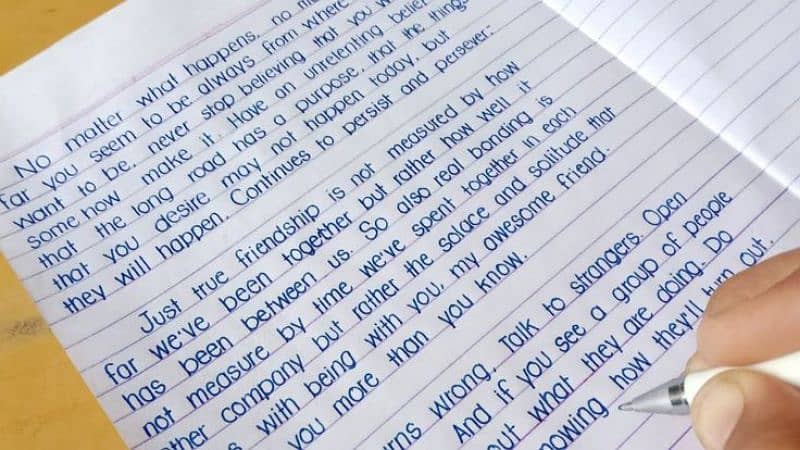 No matter what happens, no
far you seem to be always from where
want to be, never stop believing that you
some how make it. Have an unrelenting belief
that the long road has a purpose, that the things
that you desire may not happen today, but
they will happen. Continues to persist and persever:
Just true friendship is not measured by how
far we've been together but rather how well it
has been between us. So also real bonding is
not measure by time we've spent together in each
other company but rather the solace and solitude that
with being with you, my awesome friend.
you more than you know.
wrong. Talk to strangers. Open
And if you see a group of people
what they are doing. Do
how they'll turn out.